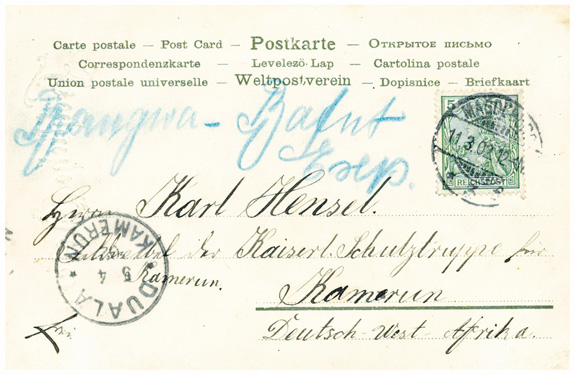 Carte postale — Post Card — Postkarte — Открытое письмо
Correspondenzkarte — Levelező-Lap — Cartolina postale
Union postale universelle — Weltpostverein — Dopisnice — Briefkaart
Bangwa - Bafut
Exp.
5
REICHSPOST
11.3.
Herrn Karl Hensel.
der Kaiserl. Schutztruppe für
Kamerun.
Kamerun
Deutsch-West Afrika.
DUALA
KAMERUN
5 4
frei